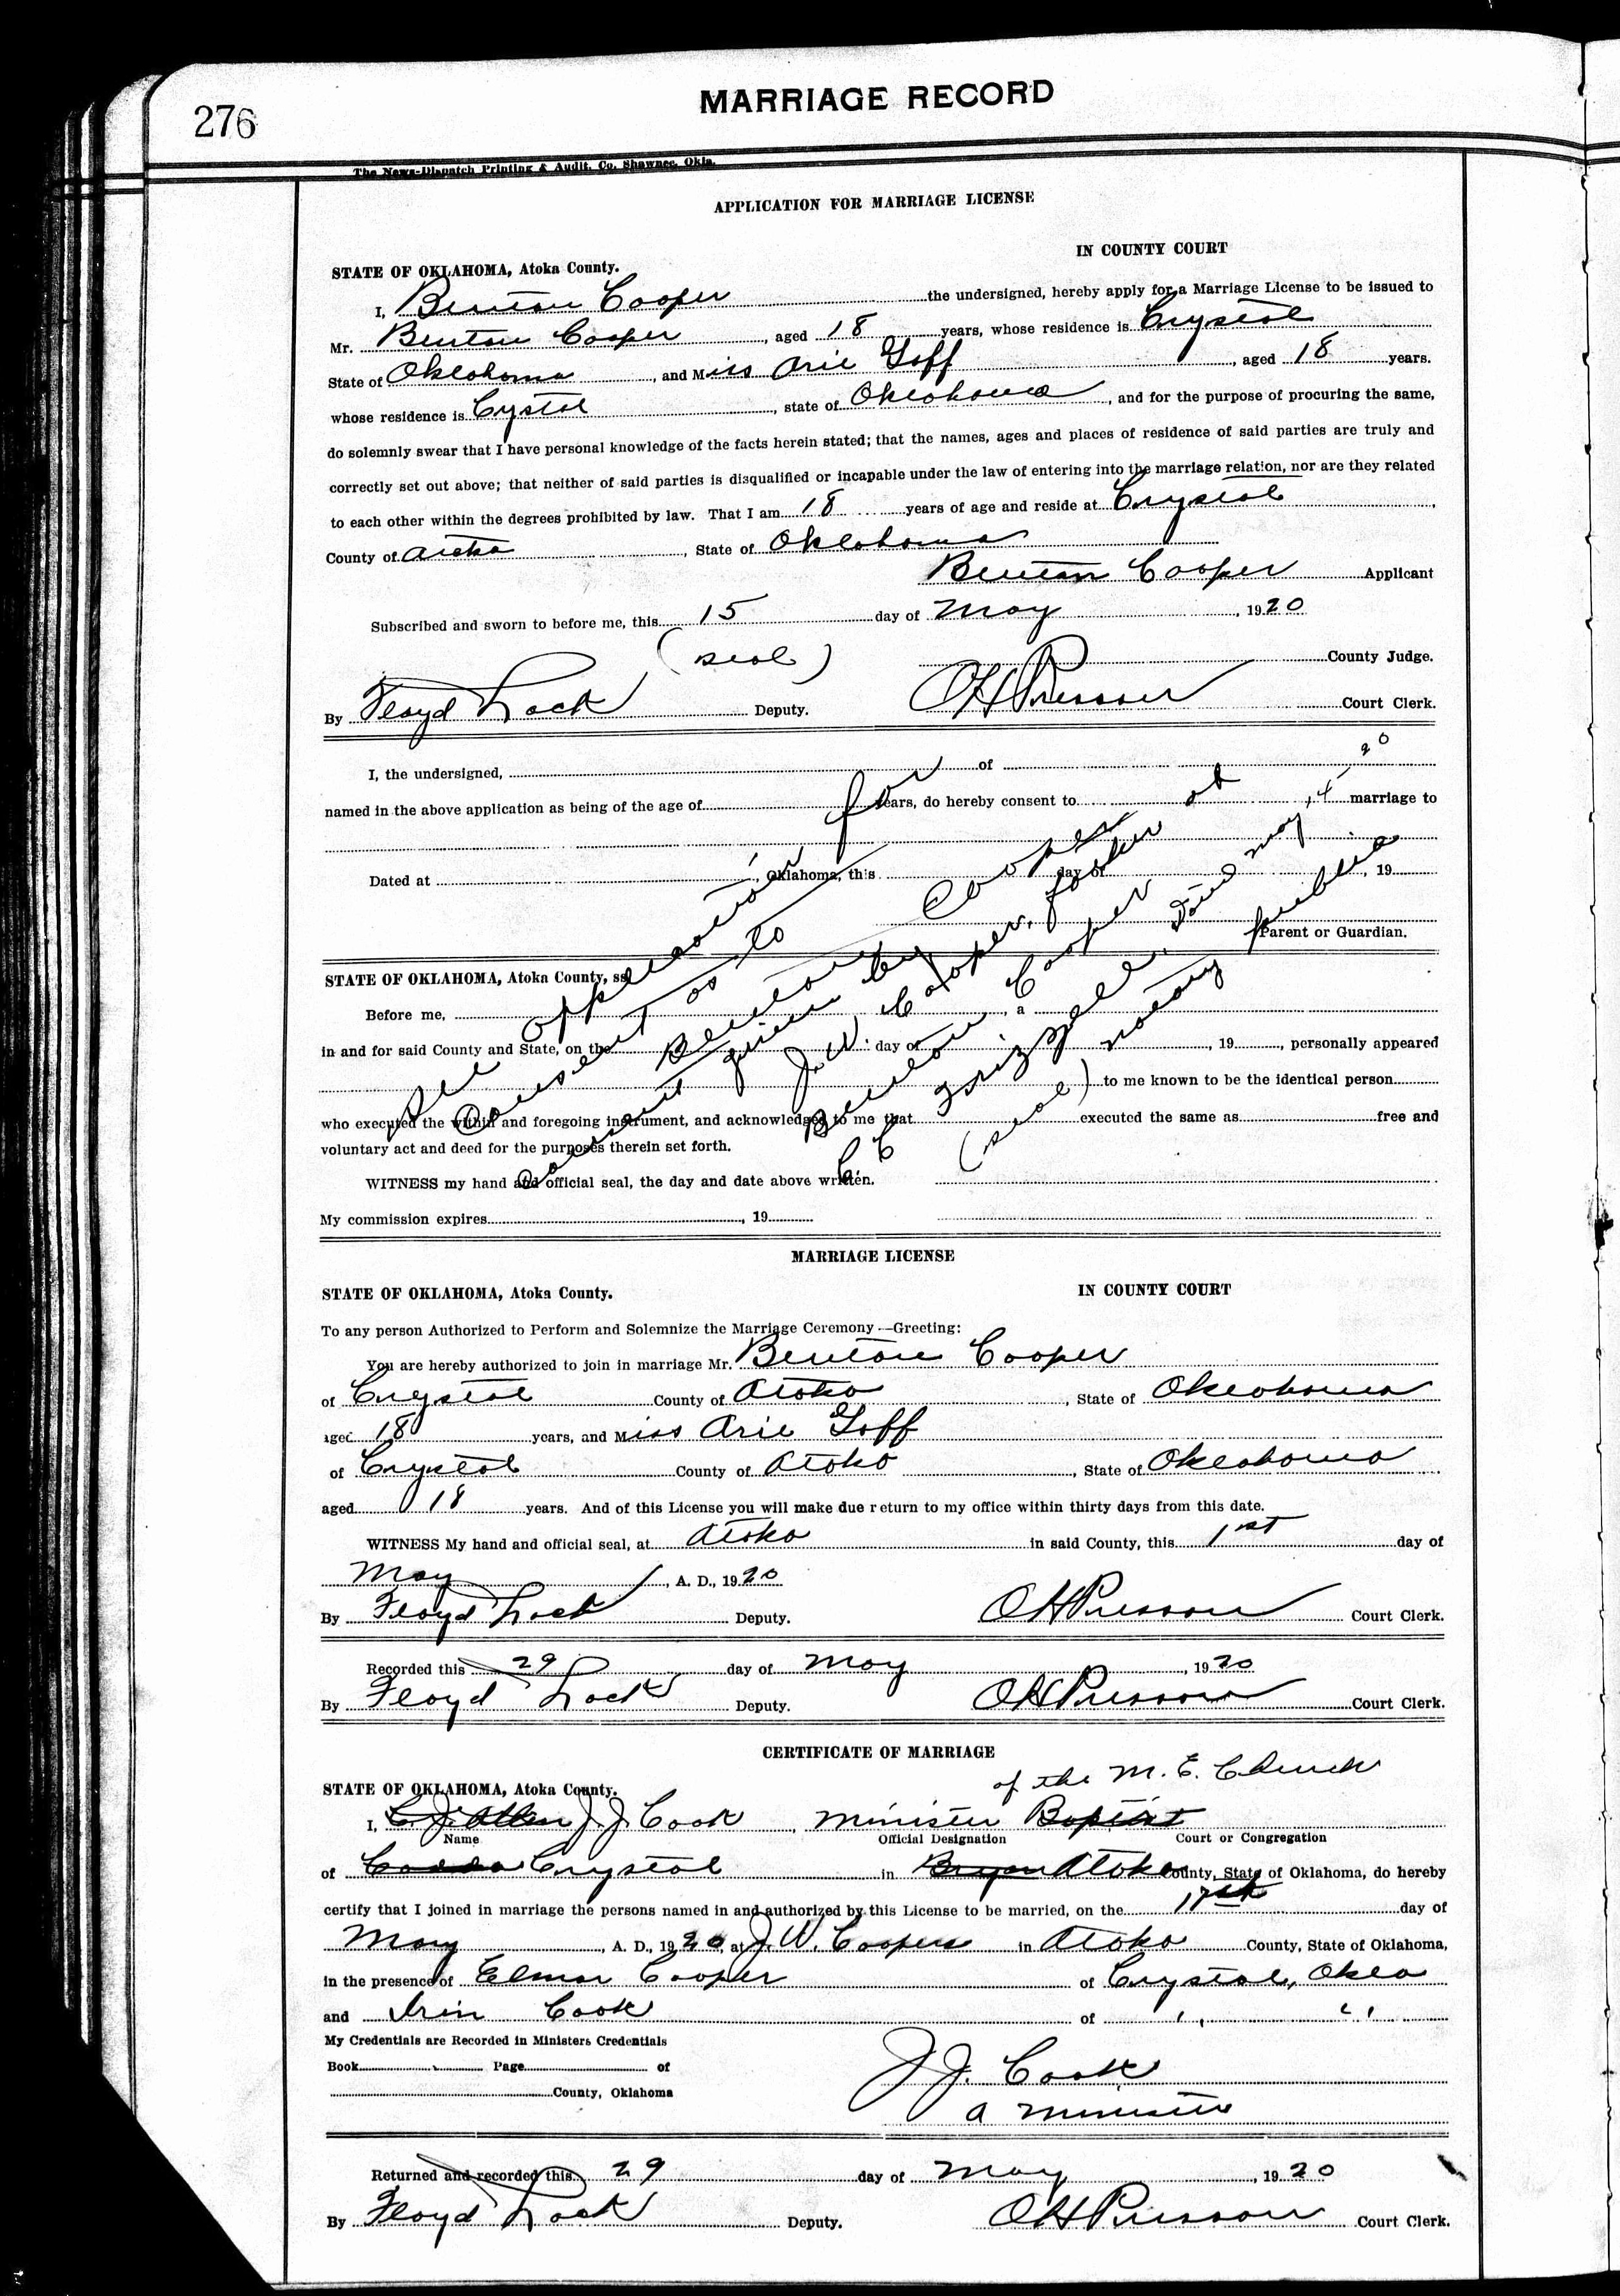 276
MARRIAGE RECORD
The News-Dispatch Printing & Audit. Co. Shawnee, Okla.
APPLICATION FOR MARRIAGE LICENSE
IN COUNTY COURT
STATE OF OKLAHOMA, Atoka County.
I, Benton Cooper the undersigned, hereby apply for a Marriage License to be issued to
Mr. Benton Cooper, aged 18 years, whose residence is Crystal
State of Oklahoma, and Miss Arie Goff, aged 18 years.
whose residence is Cystal, state of Oklahoma, and for the purpose of procuring the same,
do solemnly swear that I have personal knowledge of the facts herein stated; that the names, ages and places of residence of said parties are truly and
correctly set out above; that neither of said parties is disqualified or incapable under the law of entering into the marriage relation, nor are they related
to each other within the degrees prohibited by law. That I am 18 years of age and reside at Crystal,
County of Atoka, State of Oklahoma
Benton Cooper Applicant
Subscribed and sworn to before me, this 15 day of May, 1920
(seal) County Judge.
By Floyd Lock Deputy. OH Presson Court Clerk.
I, the undersigned, of
named in the above application as being of the age of years, do hereby consent to marriage to
Dated at , Oklahoma, this day of , 19
Parent or Guardian.
See application for
Consent as to Benton Cooper
Consent given by father
J. W. Cooper, for
Benton Cooper at
C C Grizzle, notary public
(seal)
STATE OF OKLAHOMA, Atoka County, ss
Before me, , a
in and for said County and State, on the day of , 19, personally appeared
to me known to be the identical person
who executed the within and foregoing instrument, and acknowledged to me that executed the same as free and
voluntary act and deed for the purposes therein set forth.
WITNESS my hand and official seal, the day and date above written.
My commission expires , 19
MARRIAGE LICENSE
STATE OF OKLAHOMA, Atoka County. IN COUNTY COURT
To any person Authorized to Perform and Solemnize the Marriage Ceremony—Greeting:
You are hereby authorized to join in marriage Mr. Benton Cooper
of Crystal County of Atoka, State of Oklahoma
aged 18 years, and Miss Arie Goff
of Crystal County of Atoka, State of Oklahoma
aged 18 years. And of this License you will make due return to my office within thirty days from this date.
WITNESS My hand and official seal, at Atoka in said County, this 1st day of
May, A. D., 1920
By Floyd Lock Deputy. OH Presson Court Clerk.
Recorded this 29 day of May, 1920
By Floyd Lock Deputy. OH Presson Court Clerk.
CERTIFICATE OF MARRIAGE
STATE OF OKLAHOMA, Atoka County. of the M. E. Church
I, C. J. Allen J. J. Cook, minister Baptist
Name Official Designation Court or Congregation
of Crystal in Bryan Atoka County, State of Oklahoma, do hereby
certify that I joined in marriage the persons named in and authorized by this License to be married, on the 17th day of
May, A. D., 1920, at J. W. Coopers in Atoka County, State of Oklahoma,
in the presence of Elmer Cooper of Crystal, Okla
and Irin Cook of " "
My Credentials are Recorded in Ministers Credentials
Book Page of
County, Oklahoma
J J. Cook
a minister
Returned and recorded this 29 day of May, 1920
By Floyd Lock Deputy. OH Presson Court Clerk.